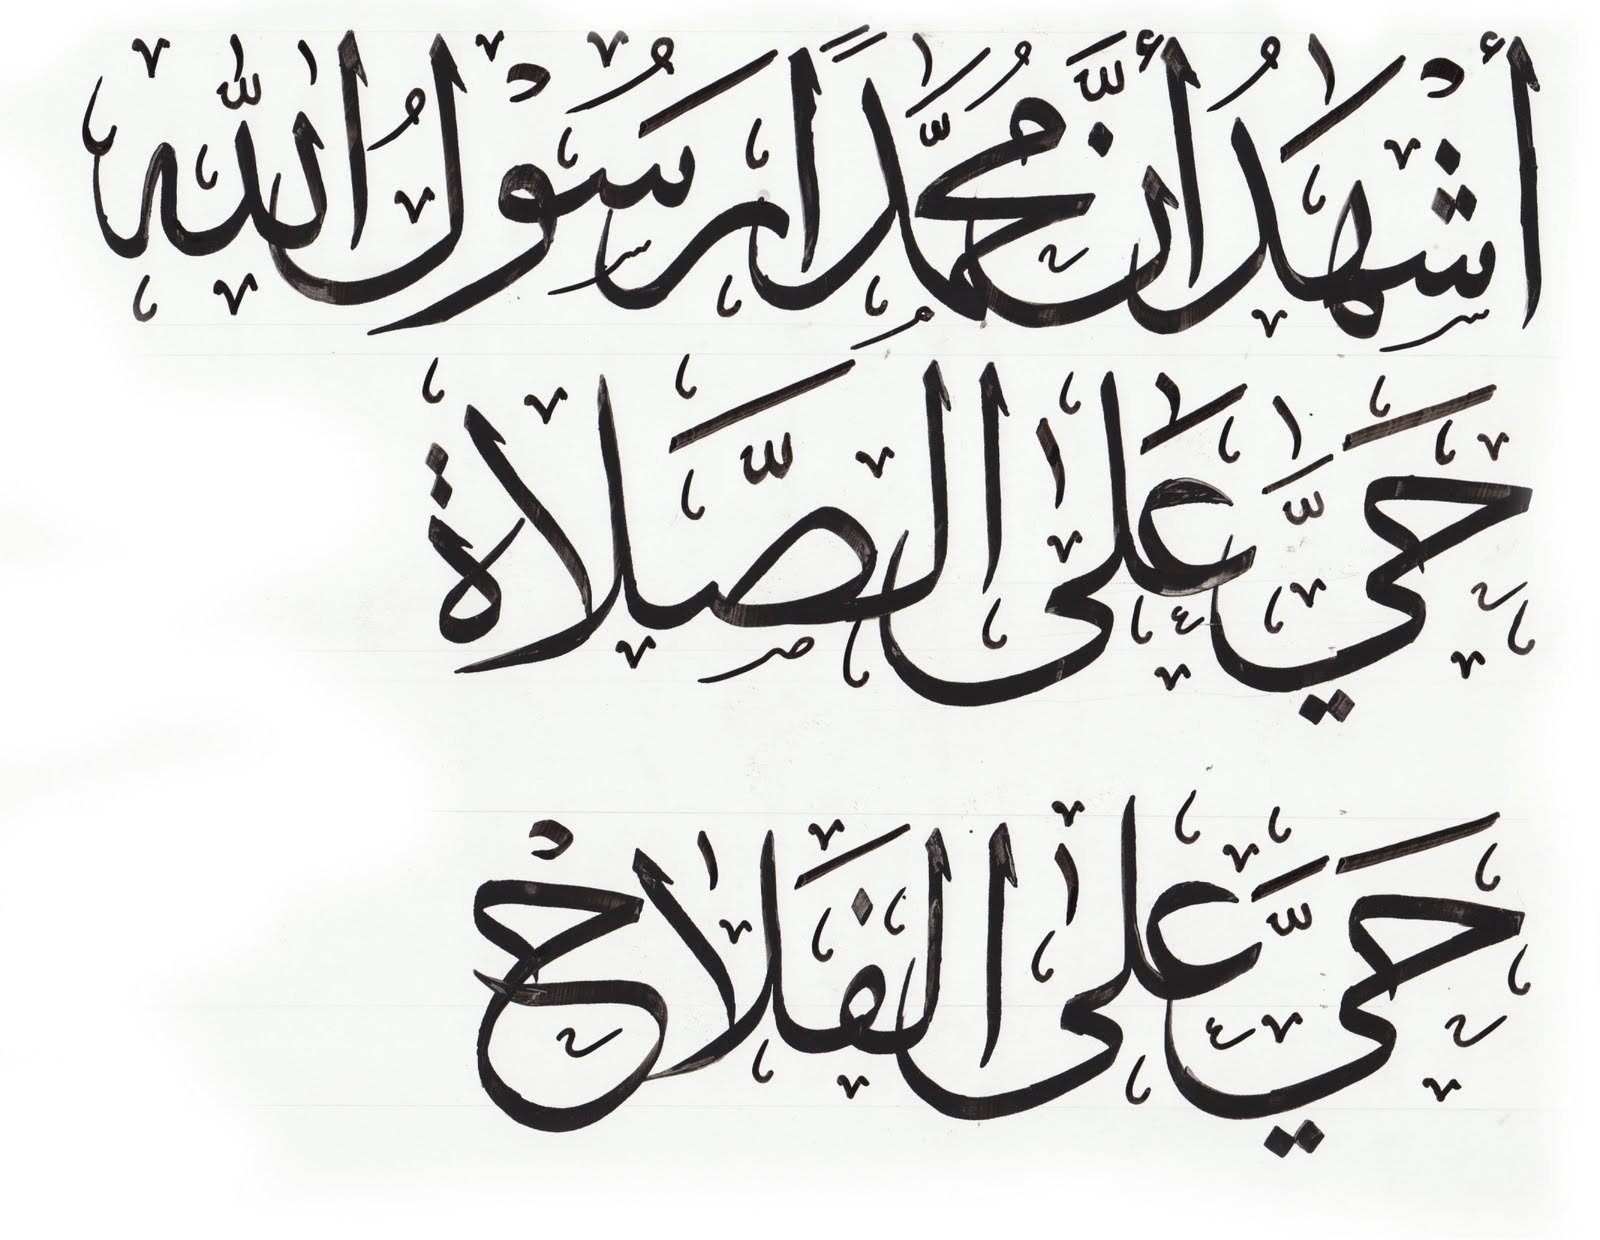 أَشْهَدُ أَنَّ مُحَمَّدًا رَسُوْلُ اللّٰه
حَيَّ عَلَى الصَّلاة
حَيَّ عَلَى الفَلاحْ